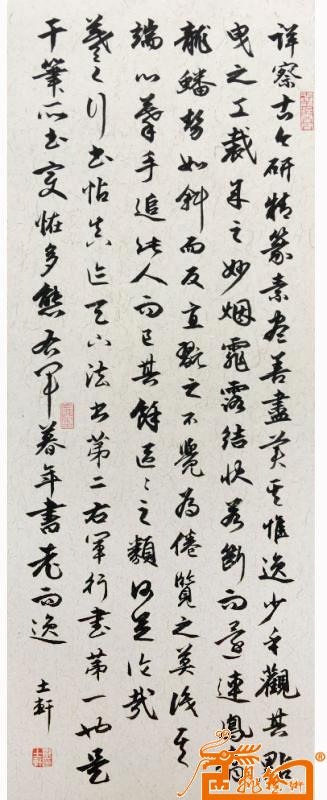 詳察古今研精篆素盡善盡美其惟逸少乎觀其點
曳之工裁成之妙烟霏露結狀若斷而還連鳳翥
龍蟠勢如斜而反直翫之不覺為倦覽之莫識其
端心摹手追此人而已其餘區々之類何足論哉
羲之行書帖真迹天下法書第二右軍行書第一也是
干筆所書變怪多態右軍暮年書老而逸
士軒